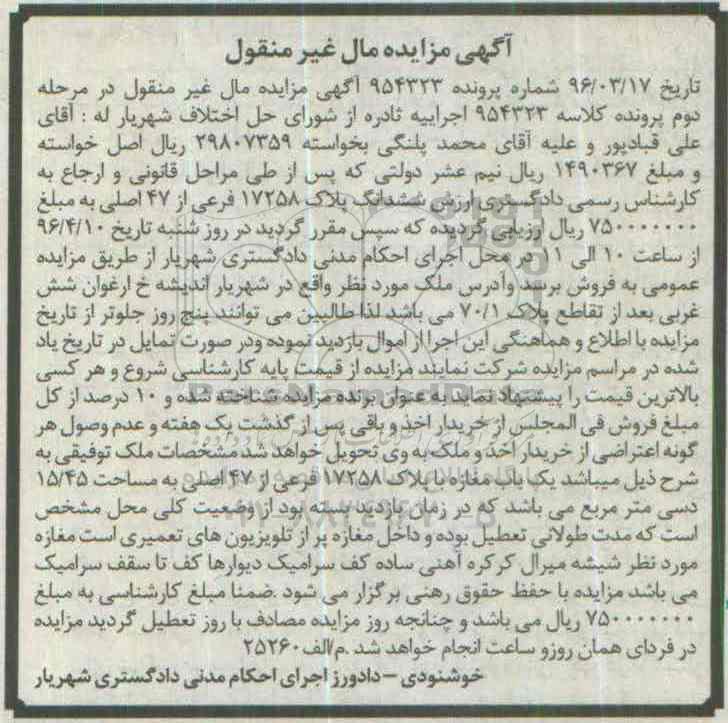 آگهی مزایده مال غیر منقول
تاریخ ۹۶/۰۳/۱۷ شماره پرونده ۹۵۴۳۲۳ آگهی مزایده مال غیر منقول در مرحله
دوم پرونده کلاسه ۹۵۴۳۲۳ اجراییه ثادره از شورای حل اختلاف شهریار له : آقای
علی قبادپور و علیه آقای محمد پلنگی بخواسته ۲۹۸۰۷۳۵۹ ریال اصل خواسته
و مبلغ ۱۴۹۰۳۶۷ ریال نیم عشر دولتی که پس از طی مراحل قانونی و ارجاع به
کارشناس رسمی دادگستری ارزش ششدانگ پلاک ۱۷۲۵۸ فرعی از ۴۷ اصلی به مبلغ
۷۵۰۰۰۰۰۰۰۰ ریال ارزیابی گردیده که سپس مقرر گردید در روز شنبه تاریخ ۹۶/۴/۱۰
از ساعت ۱۰ الی ۱۱ در محل اجرای احکام مدنی دادگستری شهریار از طریق مزایده
عمومی به فروش برسد وآدرس ملک مورد نظر واقع در شهریار اندیشه خ ارغوان شش
غربی بعد از تقاطع پلاک ۷۰/۱ می باشد لذا طالبین می توانند پنج روز جلوتر از تاریخ
مزایده با اطلاع و هماهنگی این اجرا از اموال بازدید نموده ودر صورت تمایل در تاریخ یاد
شده در مراسم مزایده شرکت نمایند مزایده از قیمت پایه کارشناسی شروع و هر کسی
بالاترین قیمت را پیشنهاد نماید به عنوان برنده مزایده شناخته شده و ۱۰ درصد از کل
مبلغ فروش فی المجلس از خریدار اخذ و باقی پس از گذشت یک هفته و عدم وصول هر
گونه اعتراضی از خریدار اخذ و ملک به وی تحویل خواهد شد مشخصات ملک توقیفی به
شرح ذیل میباشد یک باب مغازه با پلاک ۱۷۲۵۸ فرعی از ۴۷ اصلی به مساحت ۱۵/۴۵
دسی متر مربع می باشد که در زمان بازدید بسته بود از وضعیت کلی محل مشخص
است که مدت طولانی تعطیل بوده و داخل مغازه پر از تلویزیون های تعمیری است مغازه
مورد نظر شیشه میرال کرکره آهنی ساده کف سرامیک دیوارها کف تا سقف سرامیک
می باشد مزایده با حفظ حقوق رهنی برگزار می شود .ضمنا مبلغ کارشناسی به مبلغ
۷۵۰۰۰۰۰۰۰۰ ریال می باشد و چنانچه روز مزایده مصادف با روز تعطیل گردید مزایده
در فردای همان روزو ساعت انجام خواهد شد .م/الف ۲۵۲۶۰
خوشنودی – دادورز اجرای احکام مدنی دادگستری شهریار